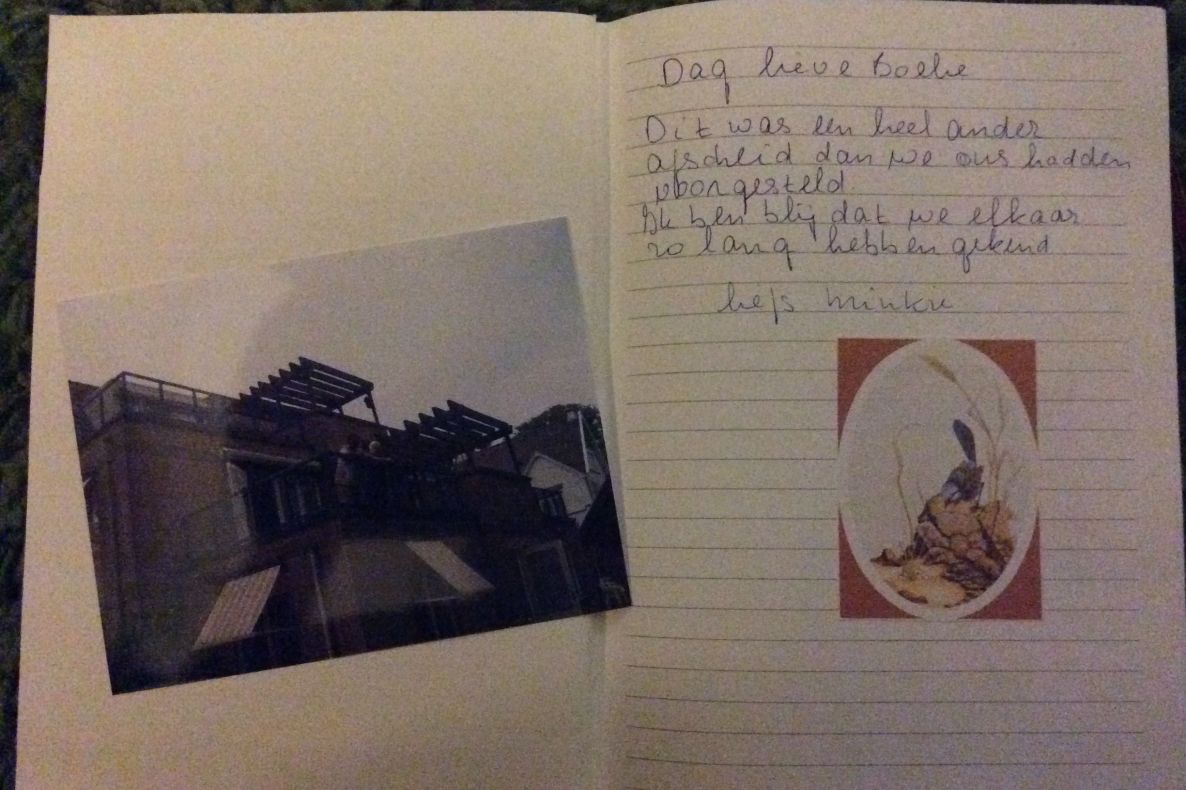 Dag lieve Boelie
Dit was een heel ander
afscheid dan we ons hadden
voorgesteld
Ik ben blij dat we elkaar
zo lang hebben gekend
liefs Minkie